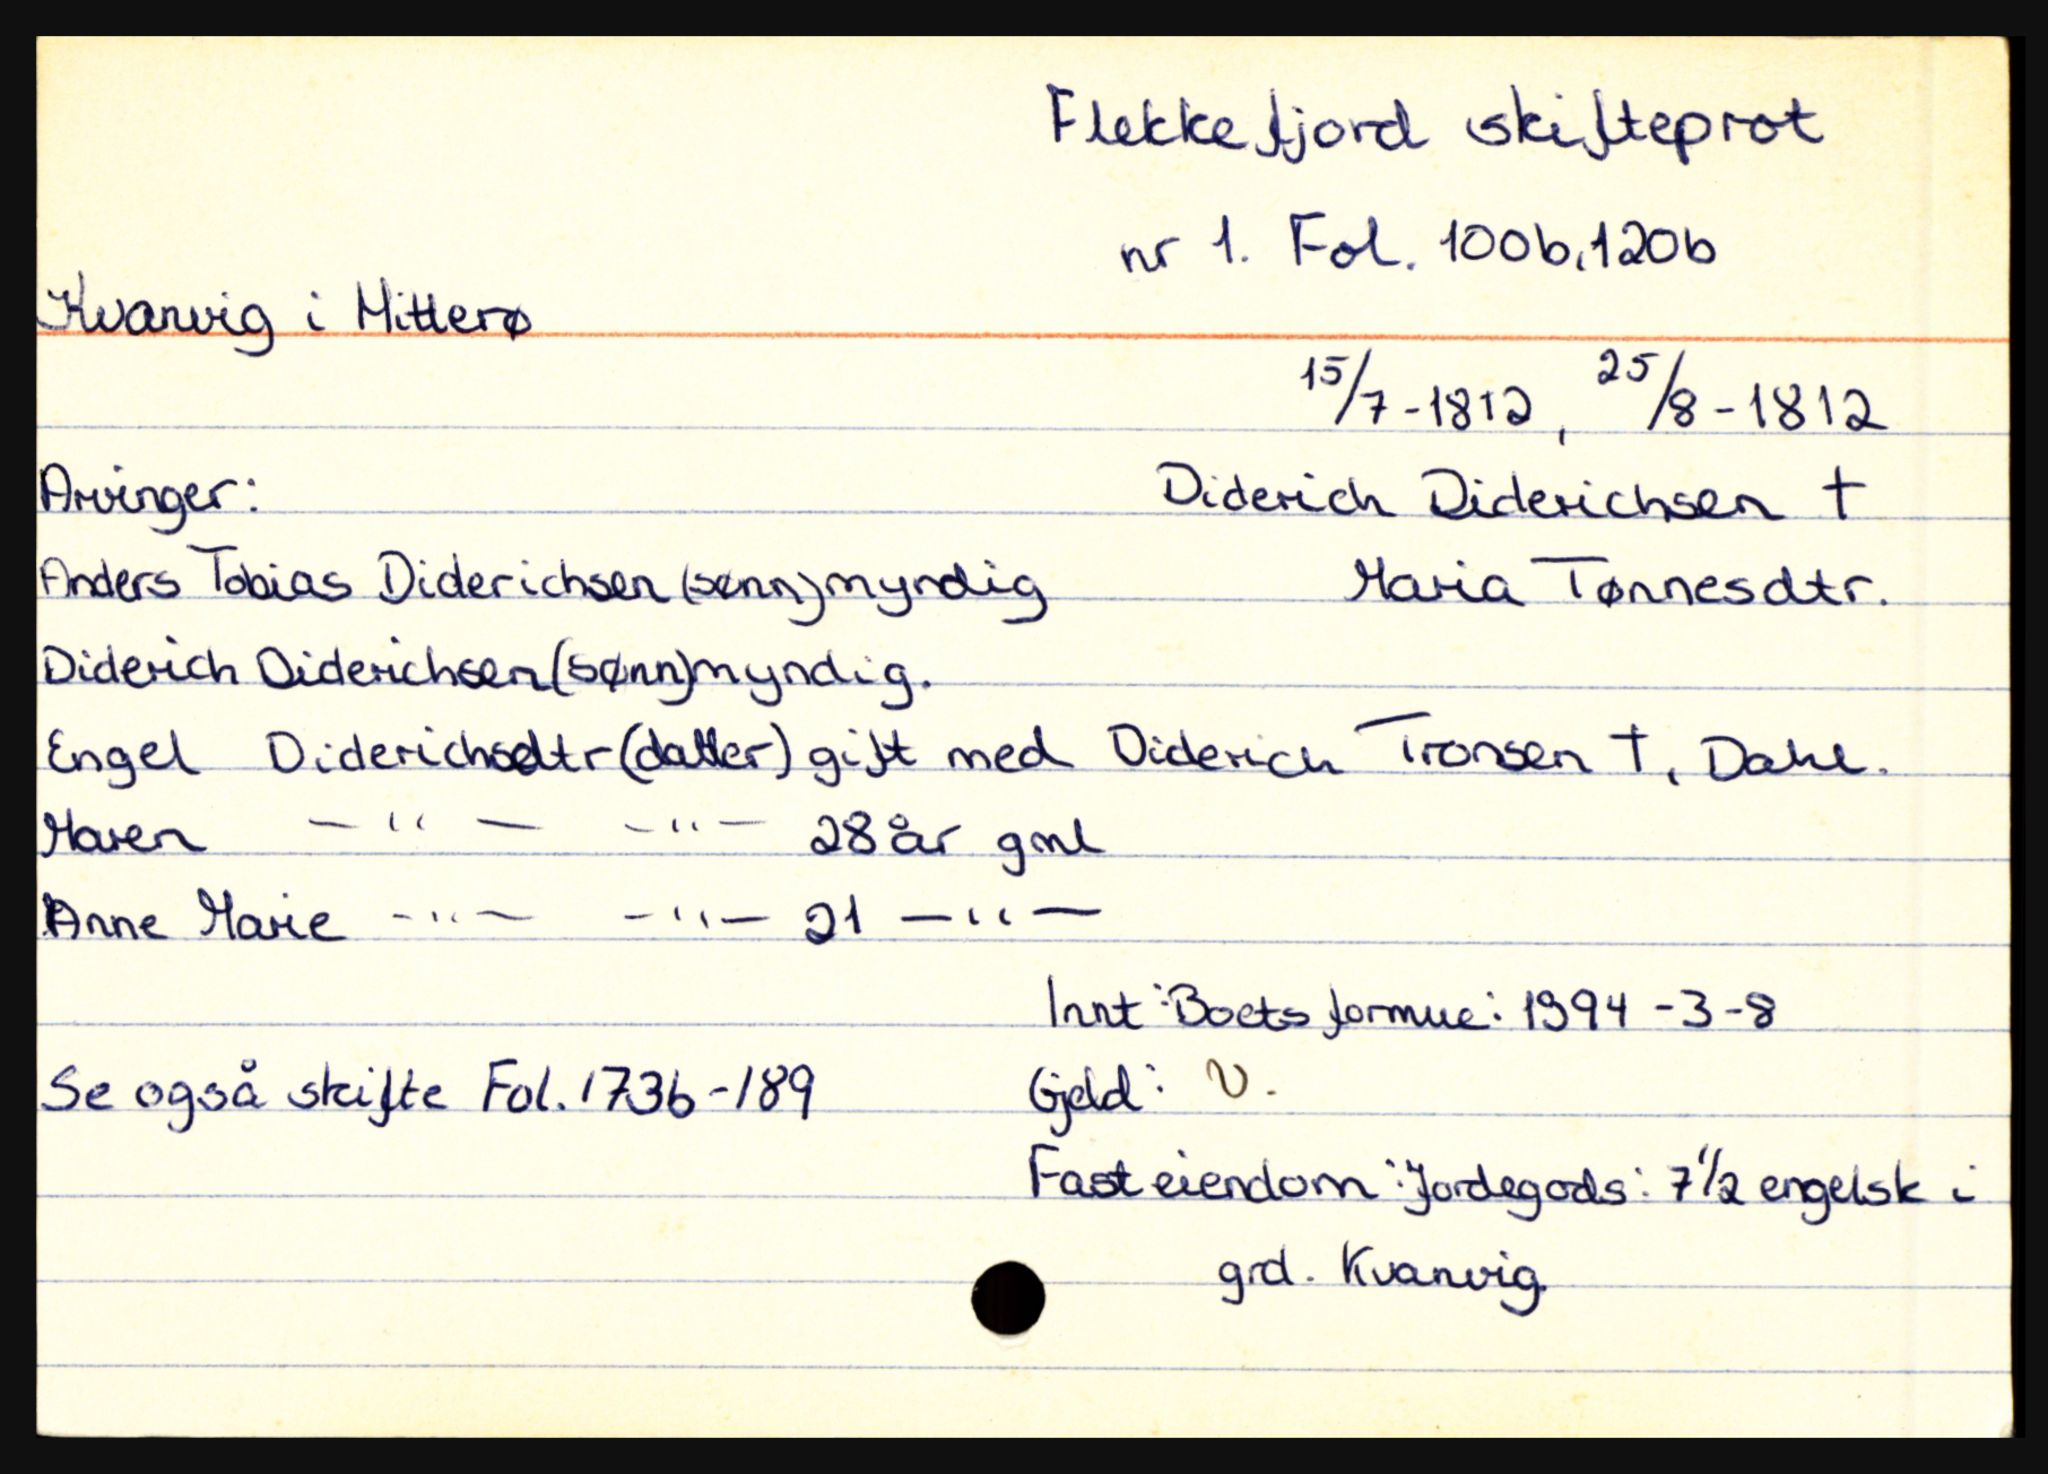 Flekkefjord skifteprot
nr 1. Fol. 100b, 120b
Kvanvig i Hitterø
15/7-1812, 25/8-1812
Arvinger: Diderich Diderichsen †
Anders Tobias Diderichsen (sønn) myndig Maria Tønnesdtr.
Diderich Diderichsen (sønn) myndig.
Engel Diderichsdtr (datter) gift med Diderich Tronsen †, Dahl.
Maren — " — — " — 28 år gml
Anne Marie — " — — " — 21 — " —
Innt: Boets formue: 1994 - 3 - 8
Se også skifte Fol. 173b - 189 Gjeld: U.
Fast eiendom: Jordegods: 7 1/2 engelsk i
grd. Kvanvig